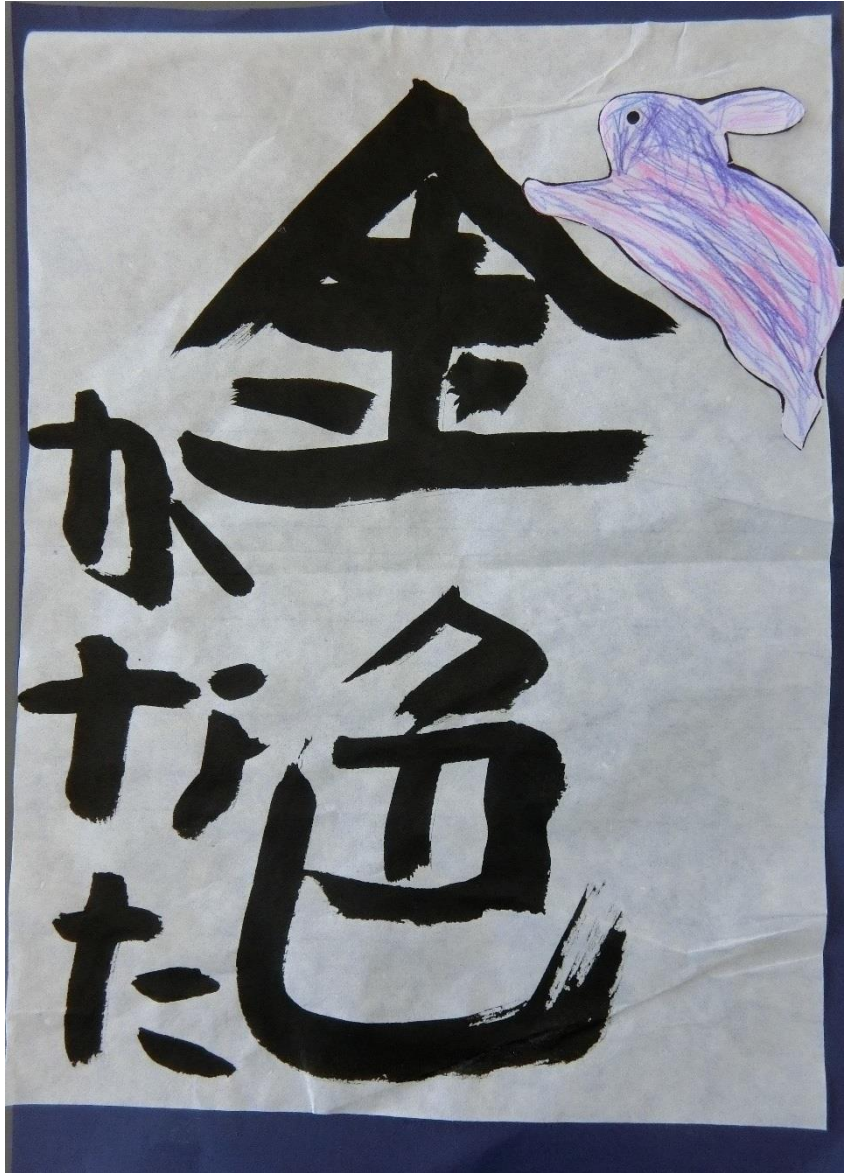 金色
かなた